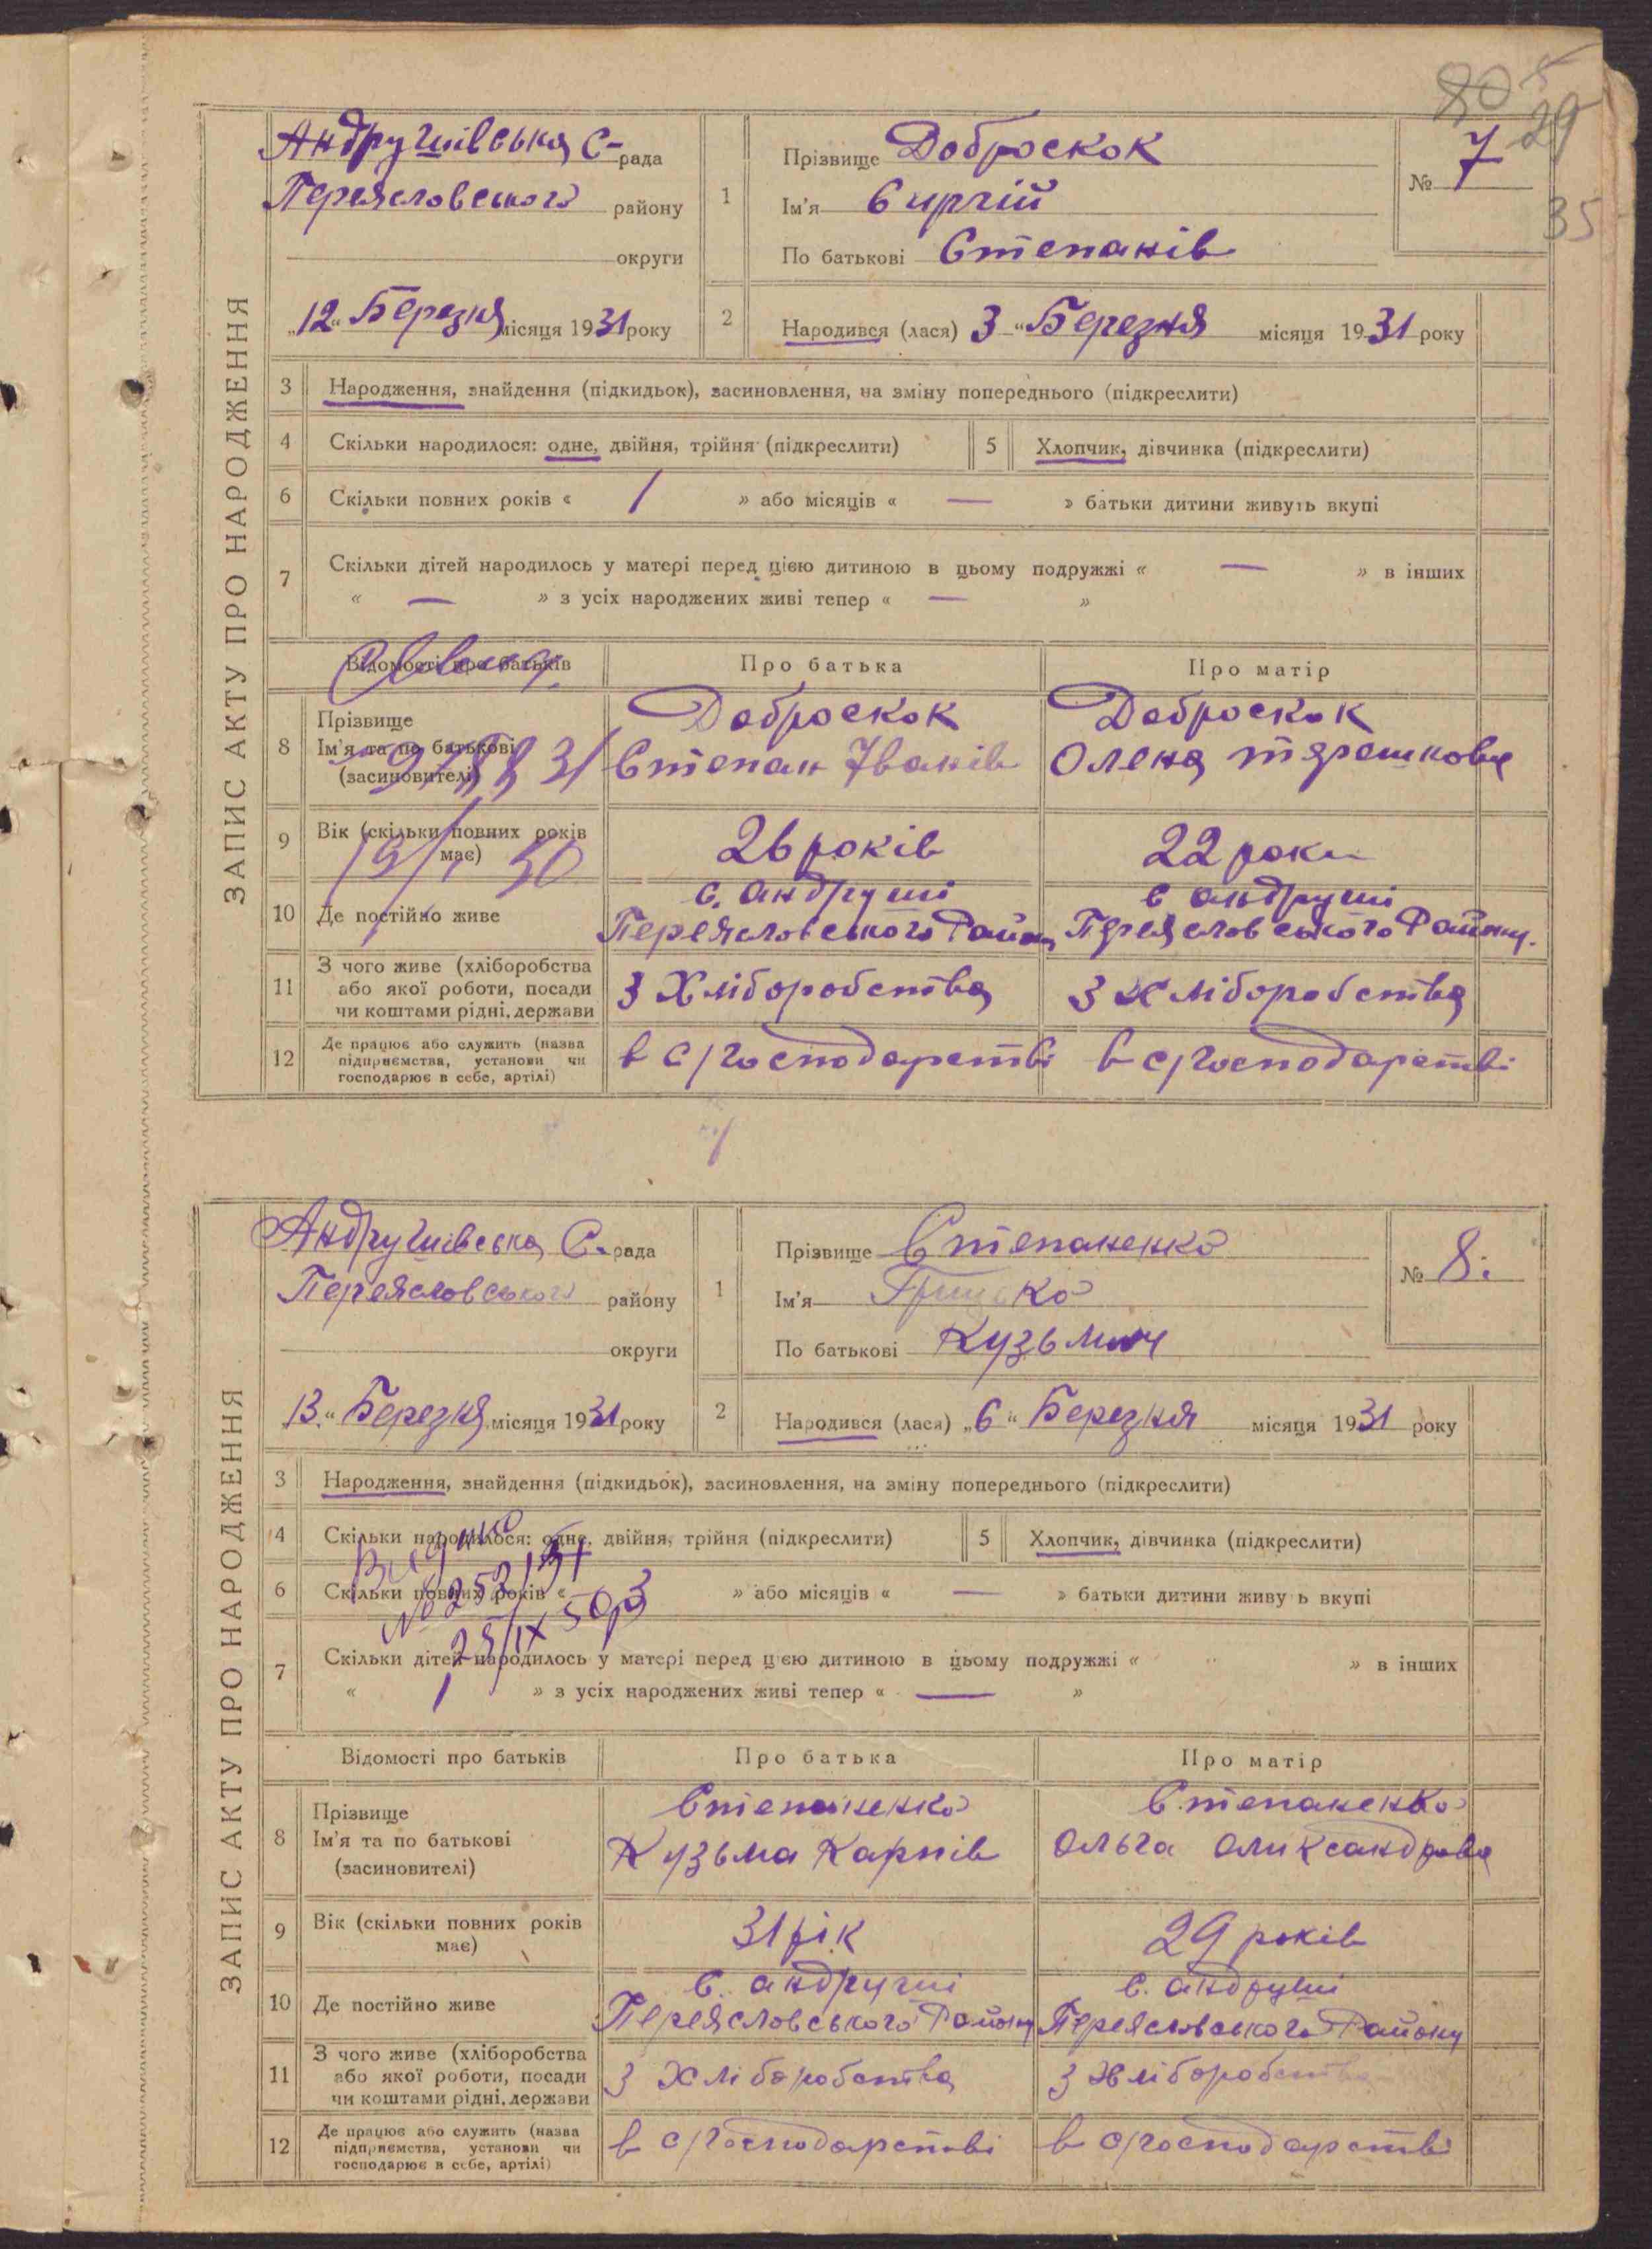 80 5
29
35
ЗАПИС АКТУ ПРО НАРОДЖЕННЯ
Андрушівська С-рада
Переясловського району
округи
„12“ Березня місяця 1931 року
1
Прізвище Доброскок
Ім'я Сиргій
По батькові Степанів
№ 7
2
Народився (лася) 3 “ Березня місяця 1931 року
3 Народження, знайдення (підкидьок), засиновлення, на зміну попереднього (підкреслити)
4 Скільки народилося: одне, двійня, трійня (підкреслити) 5 Хлопчик, дівчинка (підкреслити)
6 Скільки повних років « / » або місяців « — » батьки дитини живуть вкупі
7 Скільки дітей народилось у матері перед цією дитиною в цьому подружжі « — » в інших
« — » з усіх народжених живі тепер « — »
Відомості про батьків Про батька Про матір
8 Прізвище
Ім'я та по батькові
(засиновителі)
Доброскок
Степан Іванів
Доброскок
Олена тярешкова
9 Вік (скільки повних років
має)
26 років 22 роки
10 Де постійно живе
с. андруші
Переясловського Району
с андруші
Переясловського Району.
11 З чого живе (хліборобства
або якої роботи, посади
чи коштами рідні, держави
З Хліборобства З Хліборобства
12 Де працює або служить (назва
підприємства, установи чи
господарює в себе, артілі)
в с/господарстві в с/господарстві
ЗАПИС АКТУ ПРО НАРОДЖЕННЯ
Андрушівська С. рада
Переясловського району
округи
„13.“ Березня місяця 1931 року
1
Прізвище Степаненко
Ім'я Грицько
По батькові Кузьмич
№ 8.
2
Народився (лася) „6“ Березня місяця 1931 року
3 Народження, знайдення (підкидьок), засиновлення, на зміну попереднього (підкреслити)
4 Скільки народилося: одне, двійня, трійня (підкреслити) 5 Хлопчик, дівчинка (підкреслити)
6 Скільки повних років « » або місяців « — » батьки дитини живуть вкупі
25/IX 50р
7 Скільки дітей народилось у матері перед цією дитиною в цьому подружжі « » в інших
« / » з усіх народжених живі тепер « — »
Відомості про батьків Про батька Про матір
8 Прізвище
Ім'я та по батькові
(засиновителі)
Степаненко
Кузьма Карпів
Степаненко
Ольга Оликсандрова
9 Вік (скільки повних років
має)
31 рік 29 років
10 Де постійно живе
с. андруші
Переясловського Району
с. андруші
Переясловського Району
11 З чого живе (хліборобства
або якої роботи, посади
чи коштами рідні, держави
З Хліборобства З Хліборобства
12 Де працює або служить (назва
підприємства, установи чи
господарює в себе, артілі)
в с/господарстві в с/господарстві